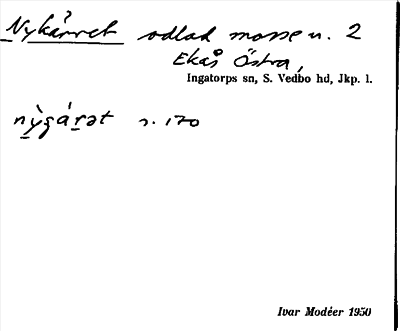 Nykärret odlad mosse u. 2
Ekås Östra,
Ingatorps sn, S. Vedbo hd, Jkp. l.
s. 170
Ivar Modéer 1950